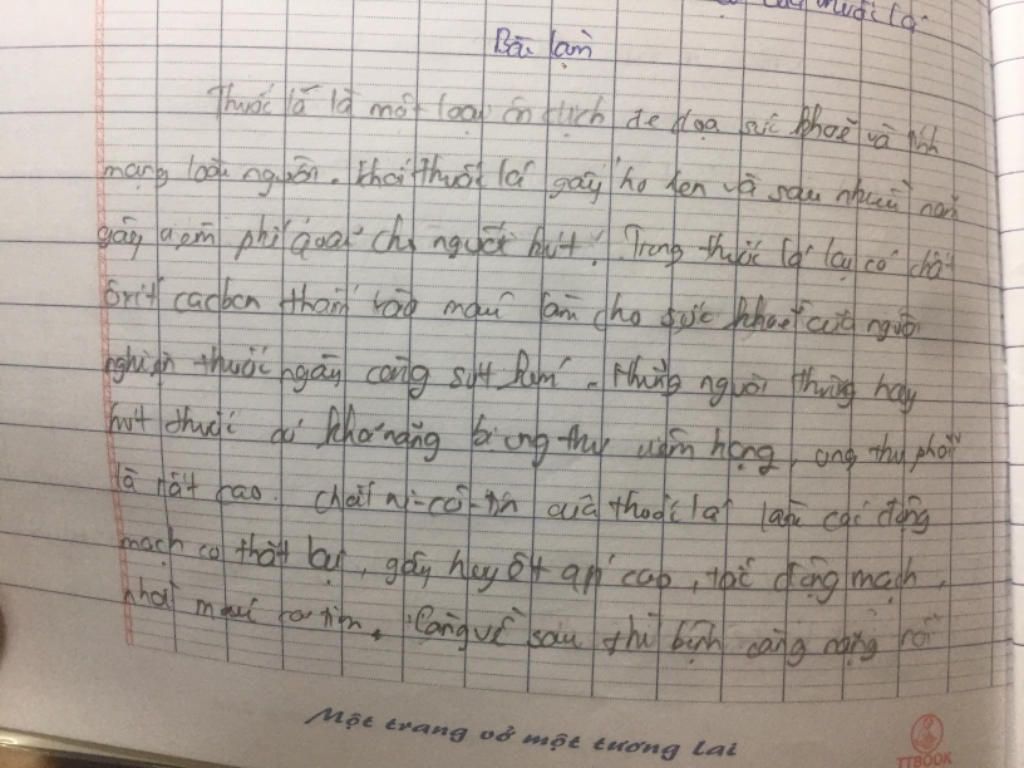 muối lạ
Bài làm
Thuốc lá là một loại ôn dịch đe dọa sức khoẻ và tính
mạng loài người. Khói thuốc lá gây ho hen và sau nhiều năm
gây viêm phế quản cho người hút. Trong thuốc lá lại có chất
ôxit cacbon thấm vào máu làm cho sức khoẻ của người
nghiện thuốc ngày càng sụt kém. Những người thường hay
hút thuốc có khả năng bị ung thư vòm họng, ung thư phổi
là rất cao. Chất ni-cô-tin của thuốc lá làm các động
mạch co thắt lại, gây huyết áp cao, tắc động mạch,
nhồi máu cơ tim. Càng về sau thì bệnh càng nặng rồi
Một trang vở một tương lai
TTBOOK